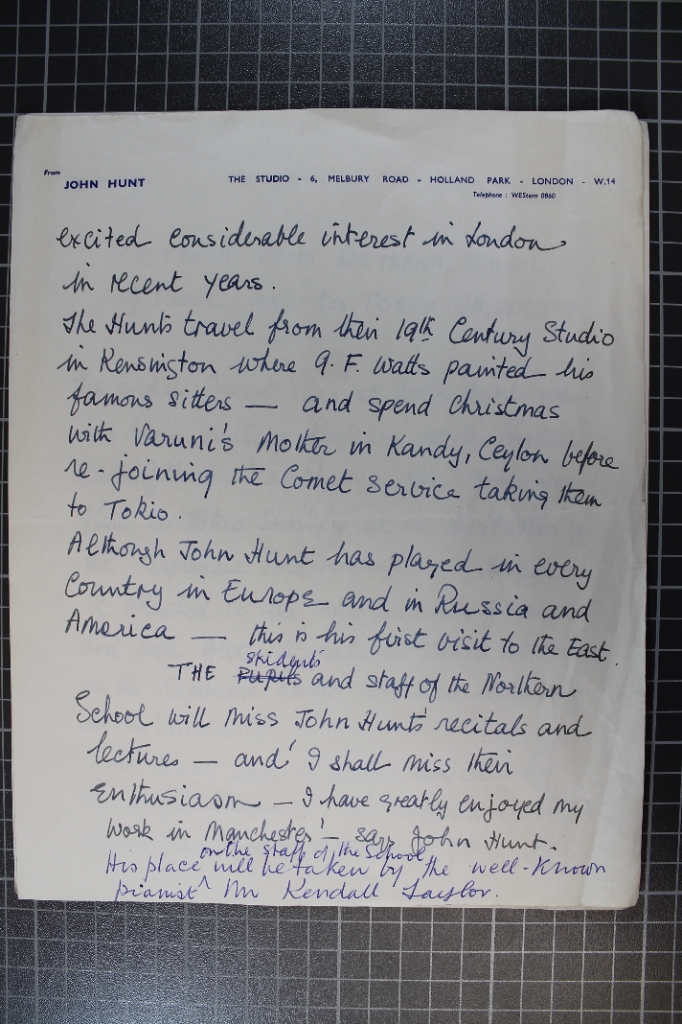 From
JOHN HUNT THE STUDIO - 6, MELBURY ROAD - HOLLAND PARK - LONDON - W.14
Telephone : WEStern 0860
excited considerable interest in London
in recent years.
The Hunts travel from their 19th Century Studio
in Kensington where G. F. Watts painted his
famous sitters — and spend Christmas
with Varuni's Mother in Kandy, Ceylon before
re-joining the Comet Service taking them
to Tokio.
Although John Hunt has played in every
Country in Europe and in Russia and
America — this is his first visit to the East.
students
THE PUPILS and staff of the Northern
School will miss John Hunt's recitals and
lectures — and 'I shall miss their
Enthusiasm — I have greatly enjoyed my
work in Manchester' — says John Hunt.
on the staff of the School
His place will be taken by the well-known
pianist ^ Mr Kendall Taylor.